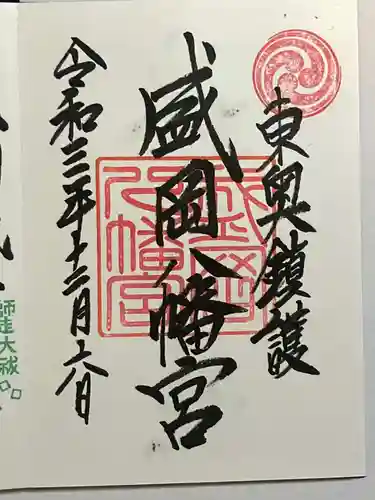 東奥鎮護
盛岡八幡宮
令和三年十二月六日
師走大祓